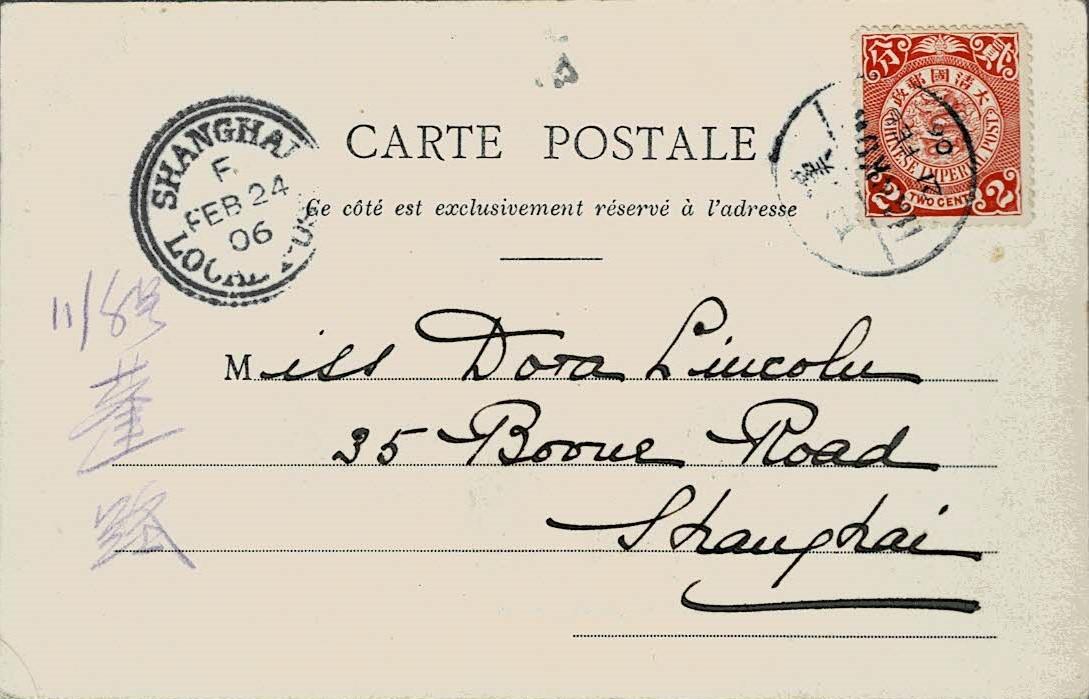 CARTE POSTALE
Ce côté est exclusivement réservé à l'adresse
SHANGHAI
FEB 24
06
LOCAL
大清國郵政
CHINESE IMPERIAL POST
2 TWO CENTS 2
Miss Dora Lincoln
35 Boone Road
Shanghai
路